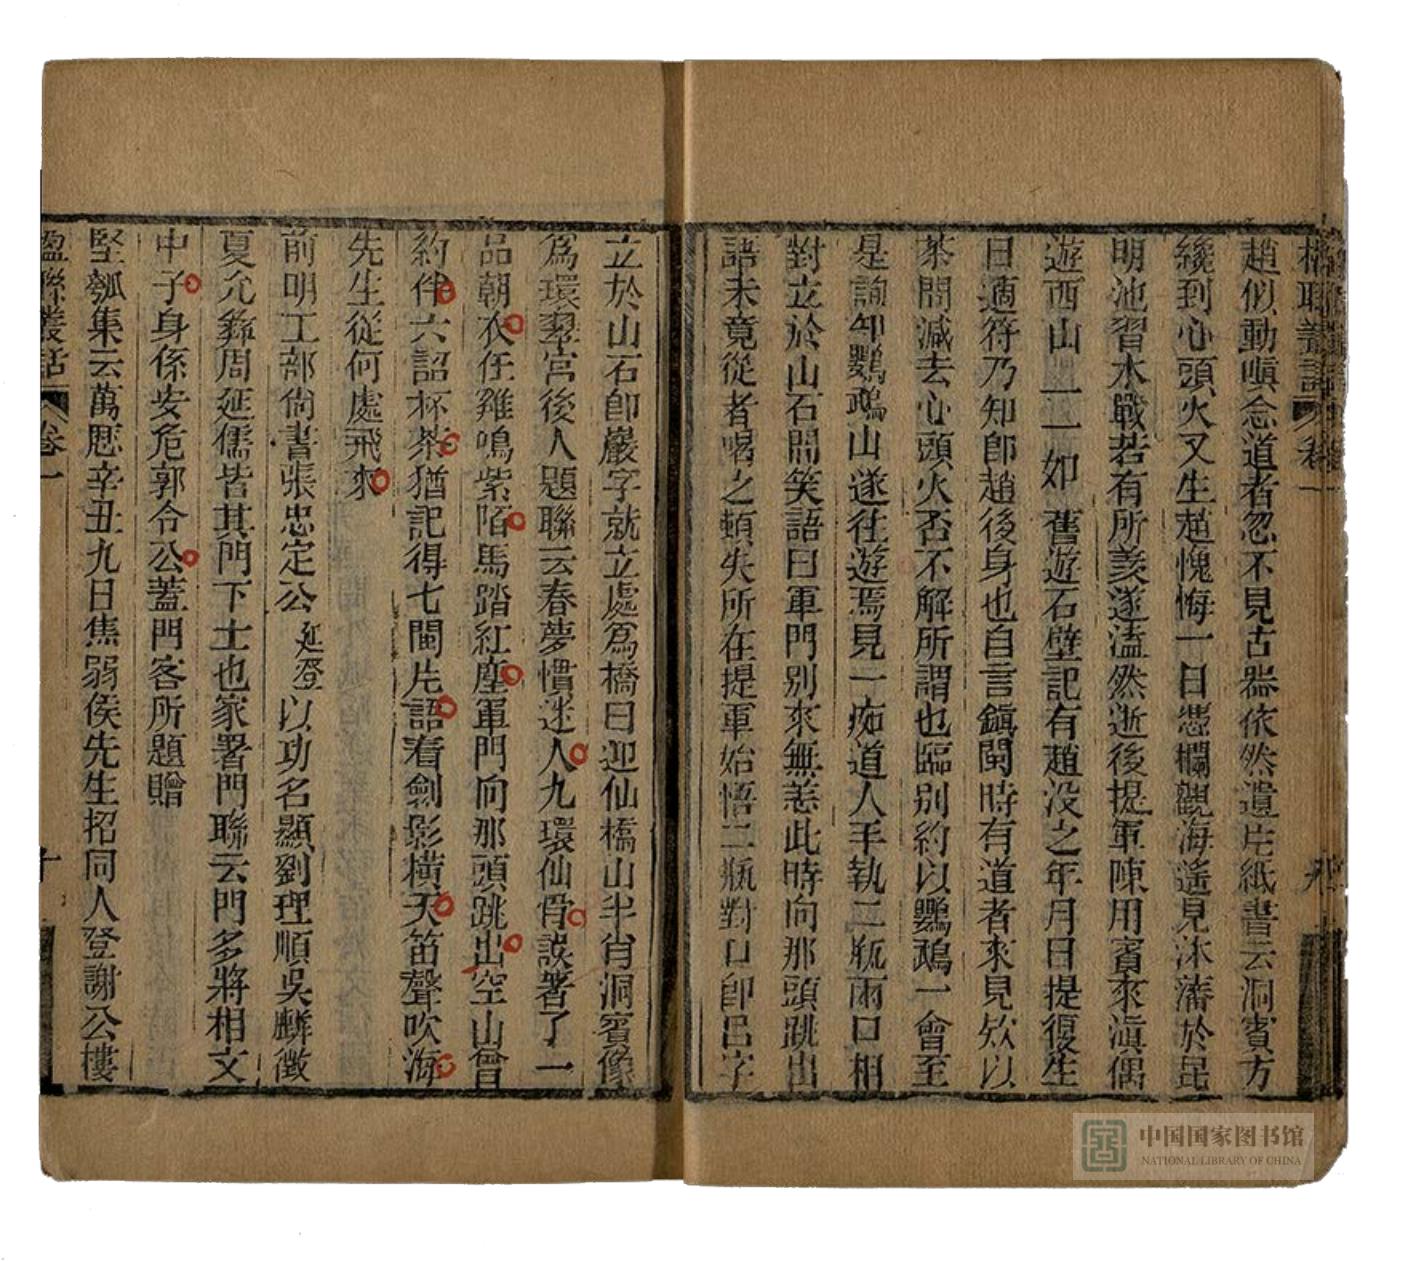 楹聯叢話 卷一 九
趙似動嗔念道者忽不見古器依然遺片紙書云洞賓方
纔到心頭火又生趙愧悔一日憑欄觀海遙見沐藩於昆
明池習水戰若有所羨遂溘然逝後提軍陳用賓來滇偶
遊西山一一如舊遊石壁記有趙没之年月日提復生
日適符乃知卽趙後身也自言鎮閩時有道者來見欸以
茶問減去心頭火否不解所謂也臨别約以鸚鵡一會至
是詢知鸚鵡山遂往遊焉見一痴道人手執二瓶兩口相
對立於山石間笑語曰軍門别來無恙此時向那頭跳出
語未竟從者喝之頓失所在提軍始悟二瓶對口卽呂字
立於山石卽巖字就立處爲橋曰迎仙橋山半肖洞賓像
爲環翠宮後人題聯云春夢慣迷人九環仙骨誤著了一
品朝衣任雞鳴紫陌馬踏紅塵軍門向那頭跳出空山曾
約伴六詔杯茶猶記得七閩片語看劍影橫天笛聲吹海
先生從何處飛來
前明工部尙書張忠定公延登以功名顯劉理順吳麟徵
夏允彝周延儒皆其門下士也家署門聯云門多將相文
中子身係安危郭令公蓋門客所題贈
堅瓠集云萬厯辛丑九日焦弱侯先生招同人登謝公樓
楹聯叢話 卷一 十
中国国家图书馆
NATIONAL LIBRARY OF CHINA